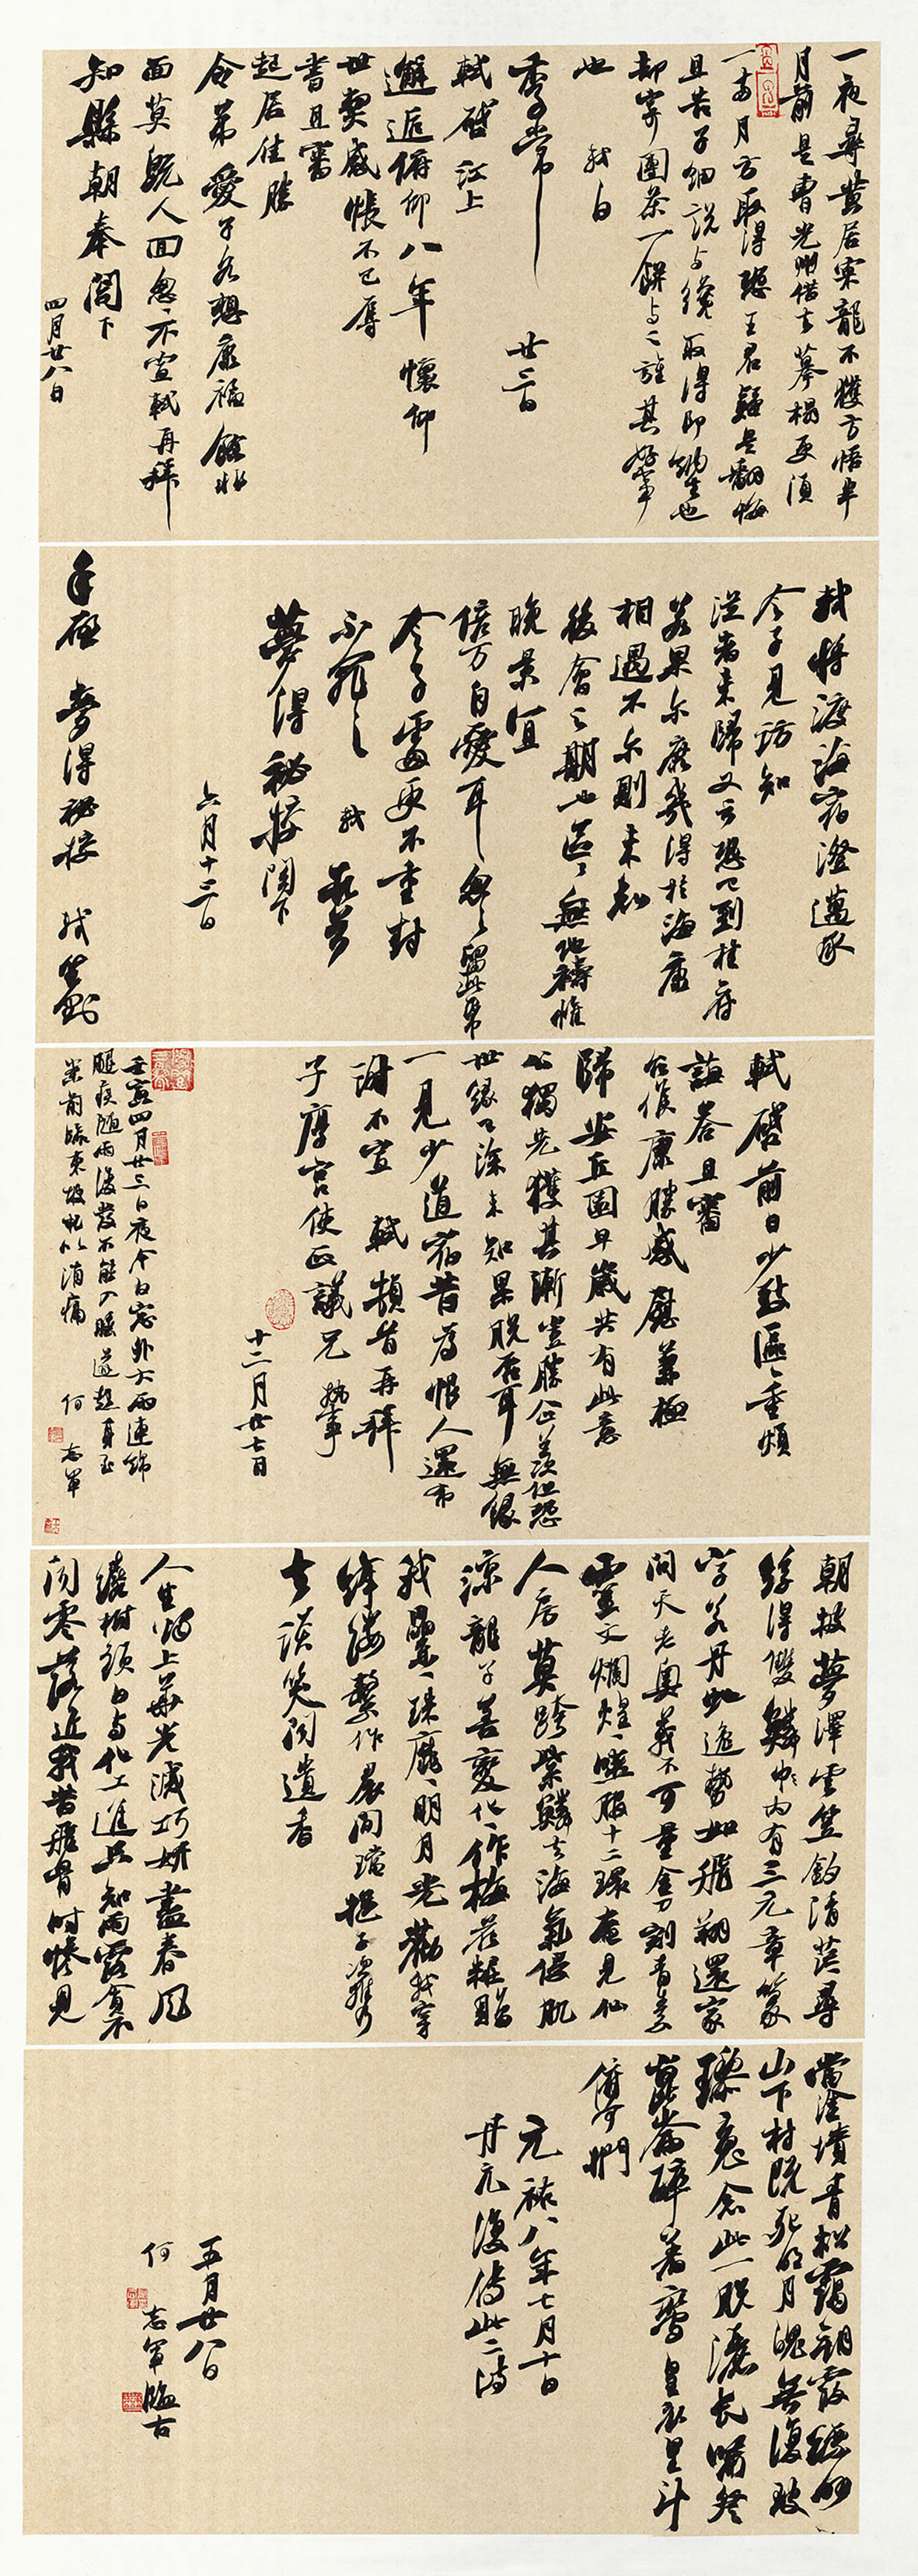 一夜尋黃居寀龍不獲方悟半
月前是曹光州借去摹榻更須
一兩月方取得恐王君疑是翻悔
且告子細說与纔取得即納去也
却寄團茶一餅与之旌其好事
也 軾白
季常 廿三日
軾啓江上
邂逅俯仰八年懷仰
世契感悵不已辱
書且審
起居佳勝
令弟愛子各想康福餘非
面莫既人回忽忽不宣軾再拜
知縣朝奉閣下
四月廿八日
軾將渡海宿澄邁承
令子見訪知
從者未歸又云恐已到桂府
若果尔庶幾得於海康
相遇不尔則未知
後會之期也區區無他禱惟
晚景宜
倍万自愛耳忽忽留此帋
令子處更不重封
不罪之 軾 頓首
夢得祕校閣下
六月十三日
手啟 夢得祕校 軾
軾啓前日少致區區重煩
誨答且審
台候康勝感慰兼極
歸安丘園早歲共有此意
公獨先獲其漸豈勝企羨但恐
世緣已深未知果脫否耳無緣
一見少道宿昔為恨人還布
謝不宣 軾頓首再拜
子厚宮使正議兄執事
十二月廿七日
壬寅四月廿三日夜今日窗外大雨連綿
腿疾随雨復發不能入眠遂起身至
案前臨東坡札以消痛 何志軍
朝披夢澤雲笠釣清茫尋
絲得雙鱗中內有三元章篆
字若丹虵逸勢如飛翔還家
問天老奧義不可量金刀割青素
靈文爛煌煌嚥服十二環奄見仙
人房莫跨紫鱗去海氣侵肌
涼龍子善變化化作梅花粧贈
我纍纍珠靡靡明月光勸我穿
絳縷繫作裾間璫挹子以攜
去談笑聞遺香
人生燭上華光滅巧妍盡春風
繞樹頭日与化工進只知雨露貪不
聞零落近我昔飛骨時慘見
當塗墳青松靄朝霞縹緲
山下村既死明月魄無復玻
瓈魂念此一脫灑長嘯登
崑崙醉著鸞皇衣星斗
俯可捫
元祐八年七月十日
丹元復傳此二詩
五月廿八日
何志軍臨古